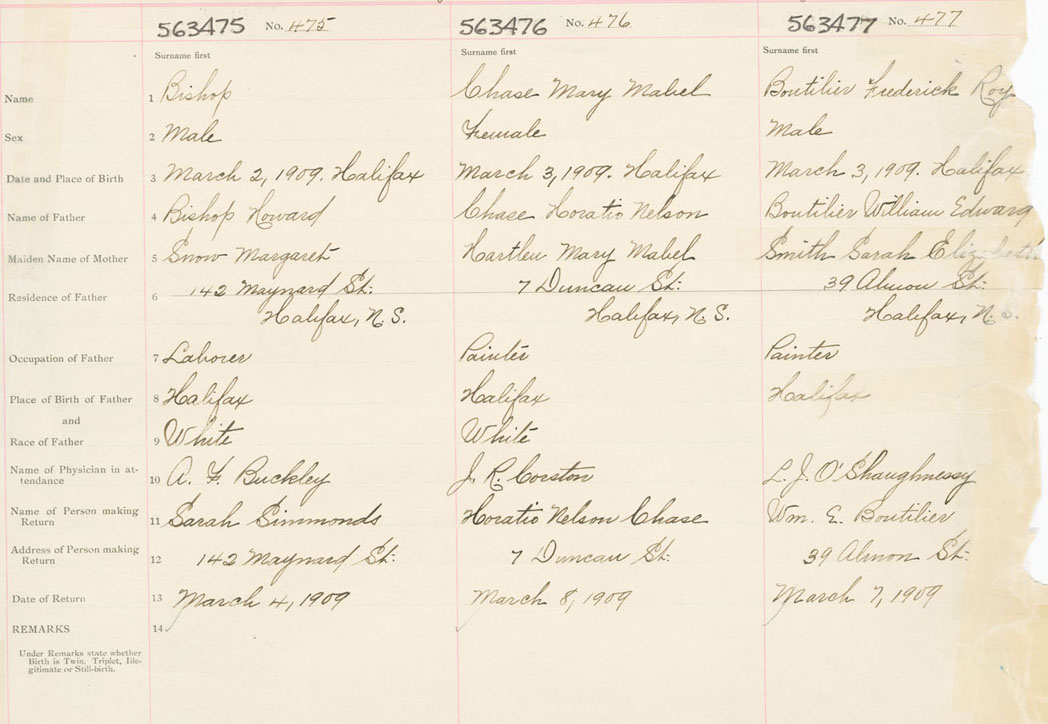 563475 No. 475 563476 No. 476 563477 No. 477
Surname first Surname first Surname first
Name 1 Bishop Chase Mary Mabel Boutilier Frederick Roy
Sex 2 Male Female Male
Date and Place of Birth 3 March 2, 1909. Halifax March 3, 1909. Halifax March 3, 1909. Halifax
Name of Father 4 Bishop Howard Chase Horatio Nelson Boutilier William Edward
Maiden Name of Mother 5 Snow Margaret Hartlen Mary Mabel Smith Sarah Elizabeth
Residence of Father 6 142 Maynard St. 7 Duncan St. 39 Almon St.
Halifax, N. S. Halifax, N. S. Halifax, N. S.
Occupation of Father 7 Laborer Painter Painter
Place of Birth of Father 8 Halifax Halifax Halifax
and
Race of Father 9 White White
Name of Physician in at-
tendance 10 A. F. Buckley J. R. Corston L. J. O'Shaughnessy
Name of Person making
Return 11 Sarah Simmonds Horatio Nelson Chase Wm. E. Boutilier
Address of Person making
Return 12 142 Maynard St. 7 Duncan St. 39 Almon St.
Date of Return 13 March 4, 1909 March 8, 1909 March 7, 1909
REMARKS 14
Under Remarks state whether
Birth is Twin, Triplet, Ille-
gitimate or Still-birth.